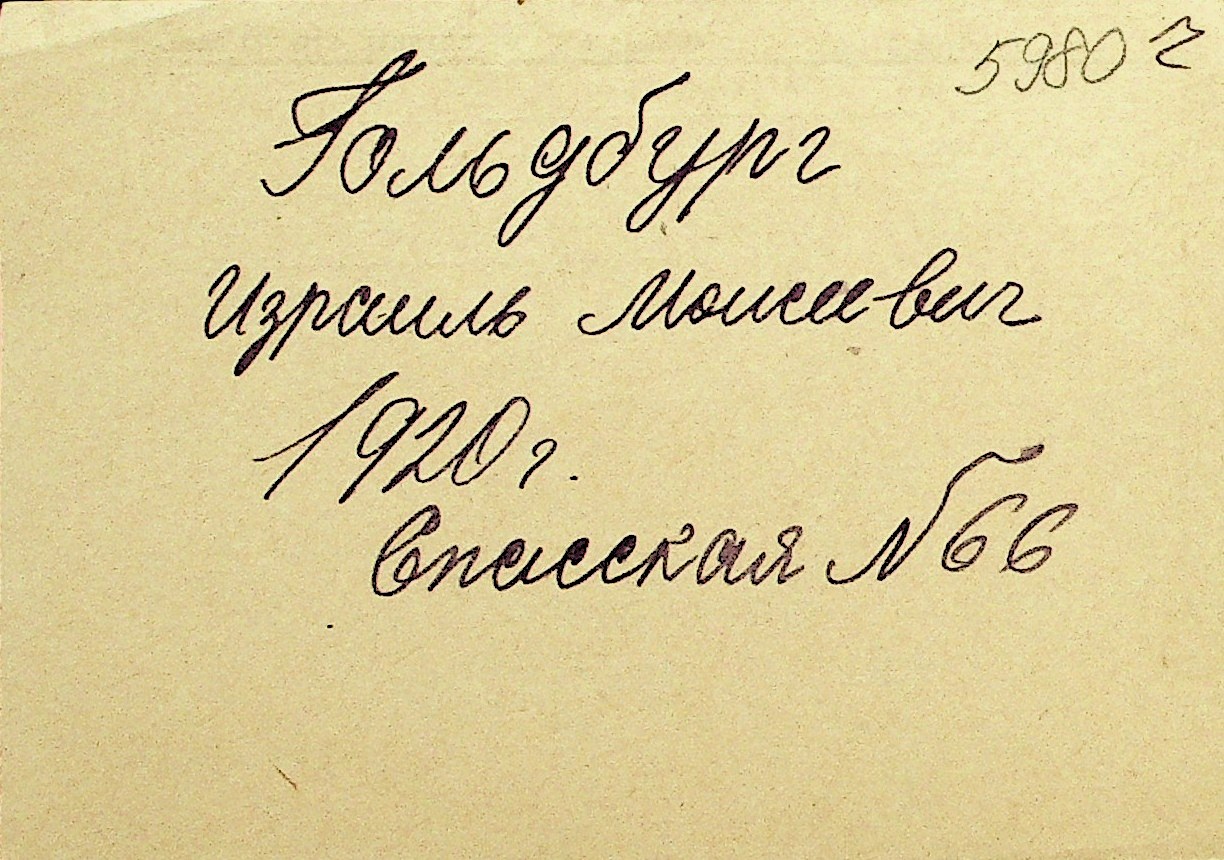 5980 г
Гольдбург
Израиль Моисеевич
1920 г.
Спасская №66